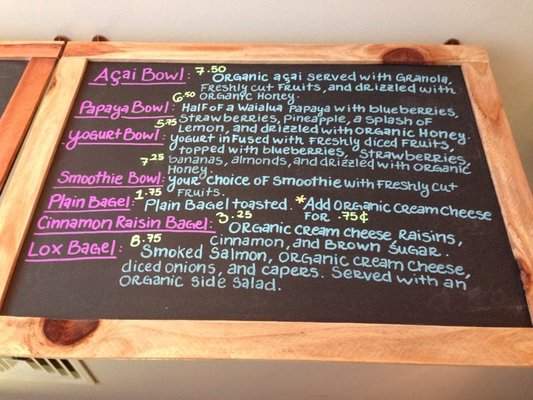 Açai Bowl: 7.50 Organic açai served with Granola,
Freshly cut Fruits, and drizzled with
Organic Honey.
Papaya Bowl: 6.50 Half of a Waialua Papaya with blueberries,
Strawberries, Pineapple, a splash of
Lemon, and drizzled with Organic Honey.
Yogurt Bowl: 5.75 Yogurt infused with Freshly diced Fruits,
topped with blueberries, Strawberries,
bananas, almonds, and drizzled with Organic
Honey.
Smoothie Bowl: 7.25 Your choice of Smoothie with Freshly cut
Fruits.
Plain Bagel: 1.75 Plain Bagel toasted. *Add Organic Cream Cheese
for .75¢
Cinnamon Raisin Bagel: 3.25 Organic Cream Cheese, Raisins,
Cinnamon, and Brown Sugar.
Lox Bagel: 8.75 Smoked Salmon, Organic cream cheese,
diced onions, and capers. Served with an
Organic side salad.